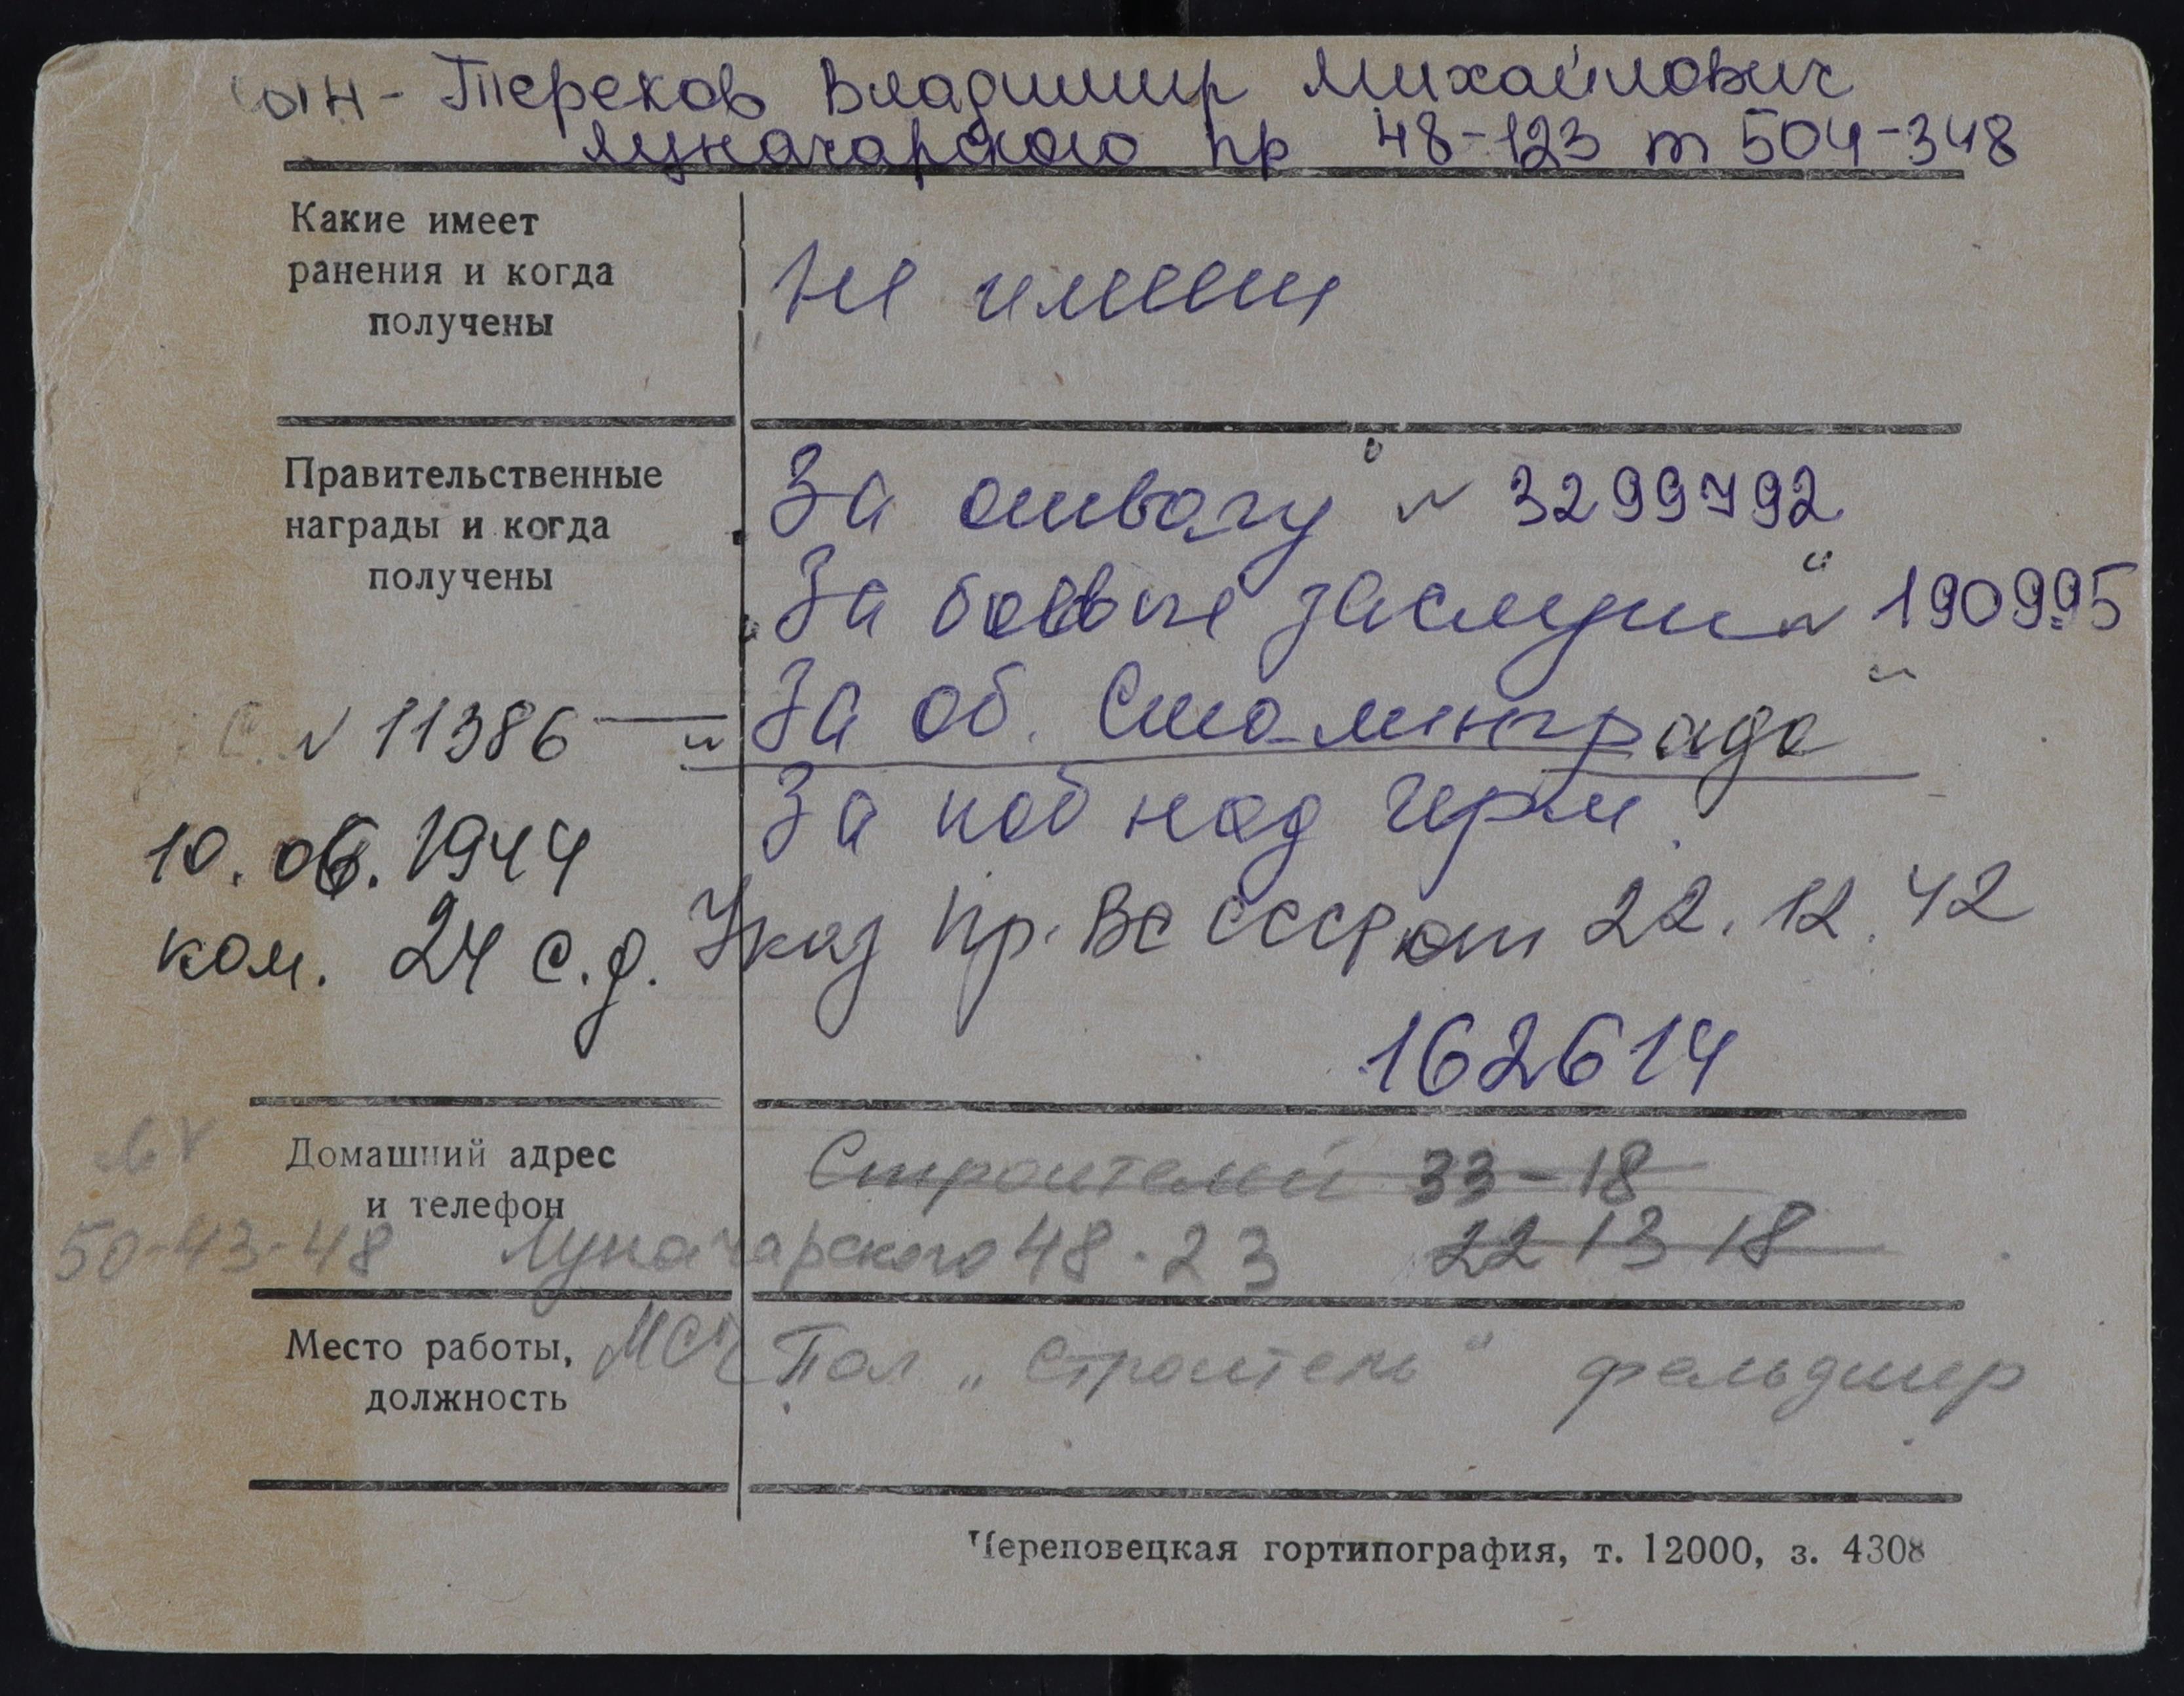 сын - Тереков Владимир Михайлович
Луначарского пр 48-123 т 504-348
Какие имеет
ранения и когда
получены
не имеет
Правительственные
награды и когда
получены
За отвагу" № 3299792
За боевые заслуги" № 190995
№ 11386 — "За об. Сталинграда"
За поб над герм.
10.06.1944
Указ Пр. ВС СССР от 22.12.42
ком. 24 с.д.
162614
Домашний адрес
и телефон
Строителей 33-18
50-43-48 Луначарского 48-23 22 13 18
Место работы,
должность
МСЧ Пол „Строитель" фельдшер
Череповецкая гортипография, т. 12000, з. 4308